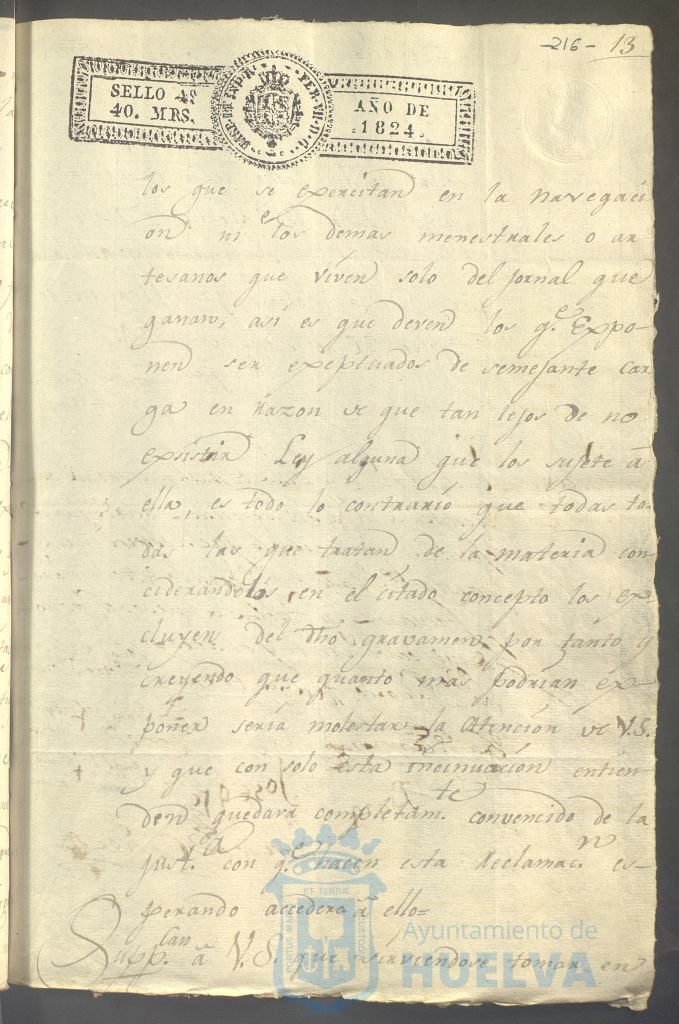 -216- 13
SELLO 4º
40. MRS.
HISP. ET IND. R. FER. VII. D. G.
AÑO DE
1824.
los que se exercitan en la navegaci
on ni los demas menestrales o ar
tesanos que viven solo del jornal que
ganan; asi es que deven los q.e Expo-
nen ser exeptuados de semejante car
ga en razon de que tan lejos de no
exsistir Ley alguna que los sujete á
ella, es todo lo contrario que todas to
das las que tratan de la materia con
ciderandolos en el citado concepto los ex-
cluyen del dho gravamen; por tanto y
creyendo que quanto mas podrian ex-
poner seria molestar la atencion de V.S.
y que con solo esta incinuacion entien-
den quedará completam.te convencido de la
just.a con q.e hacen esta Reclamac.n es-
perando accedera á ello=
Supp.can á V.S. que sirviendose tomar en
PORTUS MARIS ET TERRÆ CUSTODIA
Ayuntamiento de
HUELVA